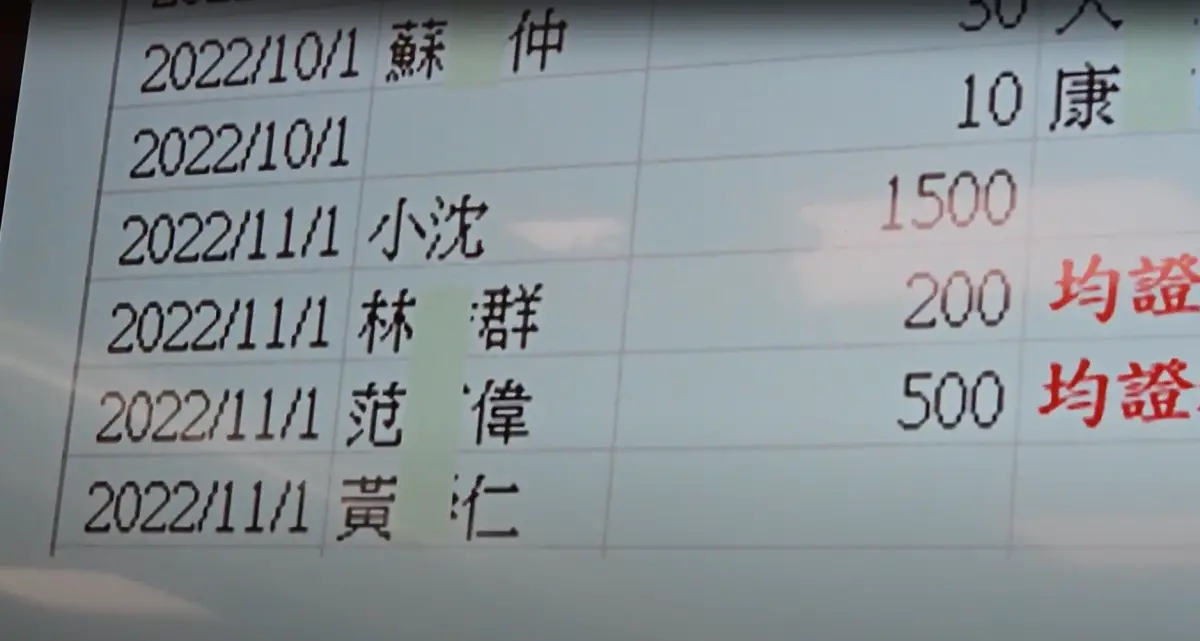 2022/10/1 蘇 仲 30 人
2022/10/1 10 康
2022/11/1 小沈 1500
2022/11/1 林 群 200 均證
2022/11/1 范 偉 500 均證
2022/11/1 黃 仁